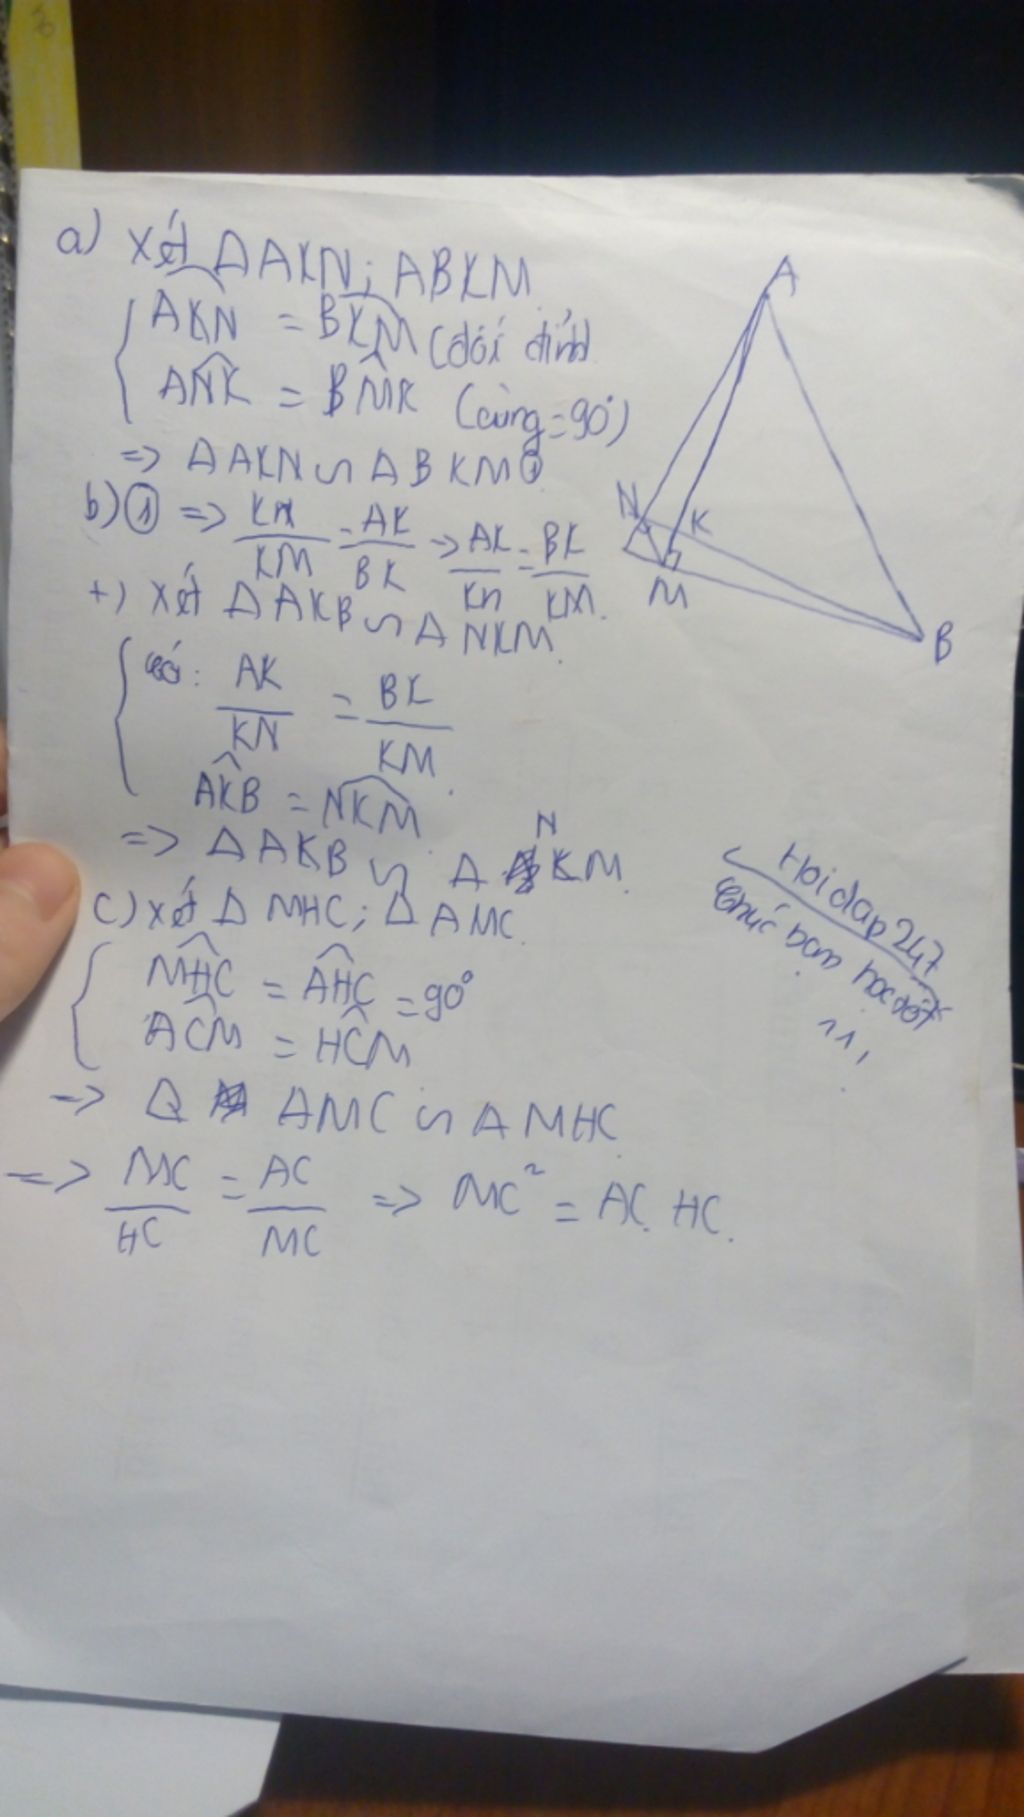 a) Xét ΔAKN; ΔBKM
AKN = BKM (đối đỉnh)
ANK = BMK (cùng = 90°)
=> ΔAKN ∽ ΔBKM ①
b) ① => KN/KM = AK/BK => AK/KN = BK/KM.
+) Xét ΔAKB ∽ ΔNKM.
có: AK/KN = BK/KM.
AKB = NKM
=> ΔAKB ∽ ΔNKM.
c) xét ΔMHC; ΔAMC.
MHC = AHC = 90°
ACM = HCM
=> Δ AMC ∽ ΔMHC
=> MC/HC = AC/MC => MC² = AC. HC.
A
N
K
M
B
Hoidap247
Chúc bạn học tốt